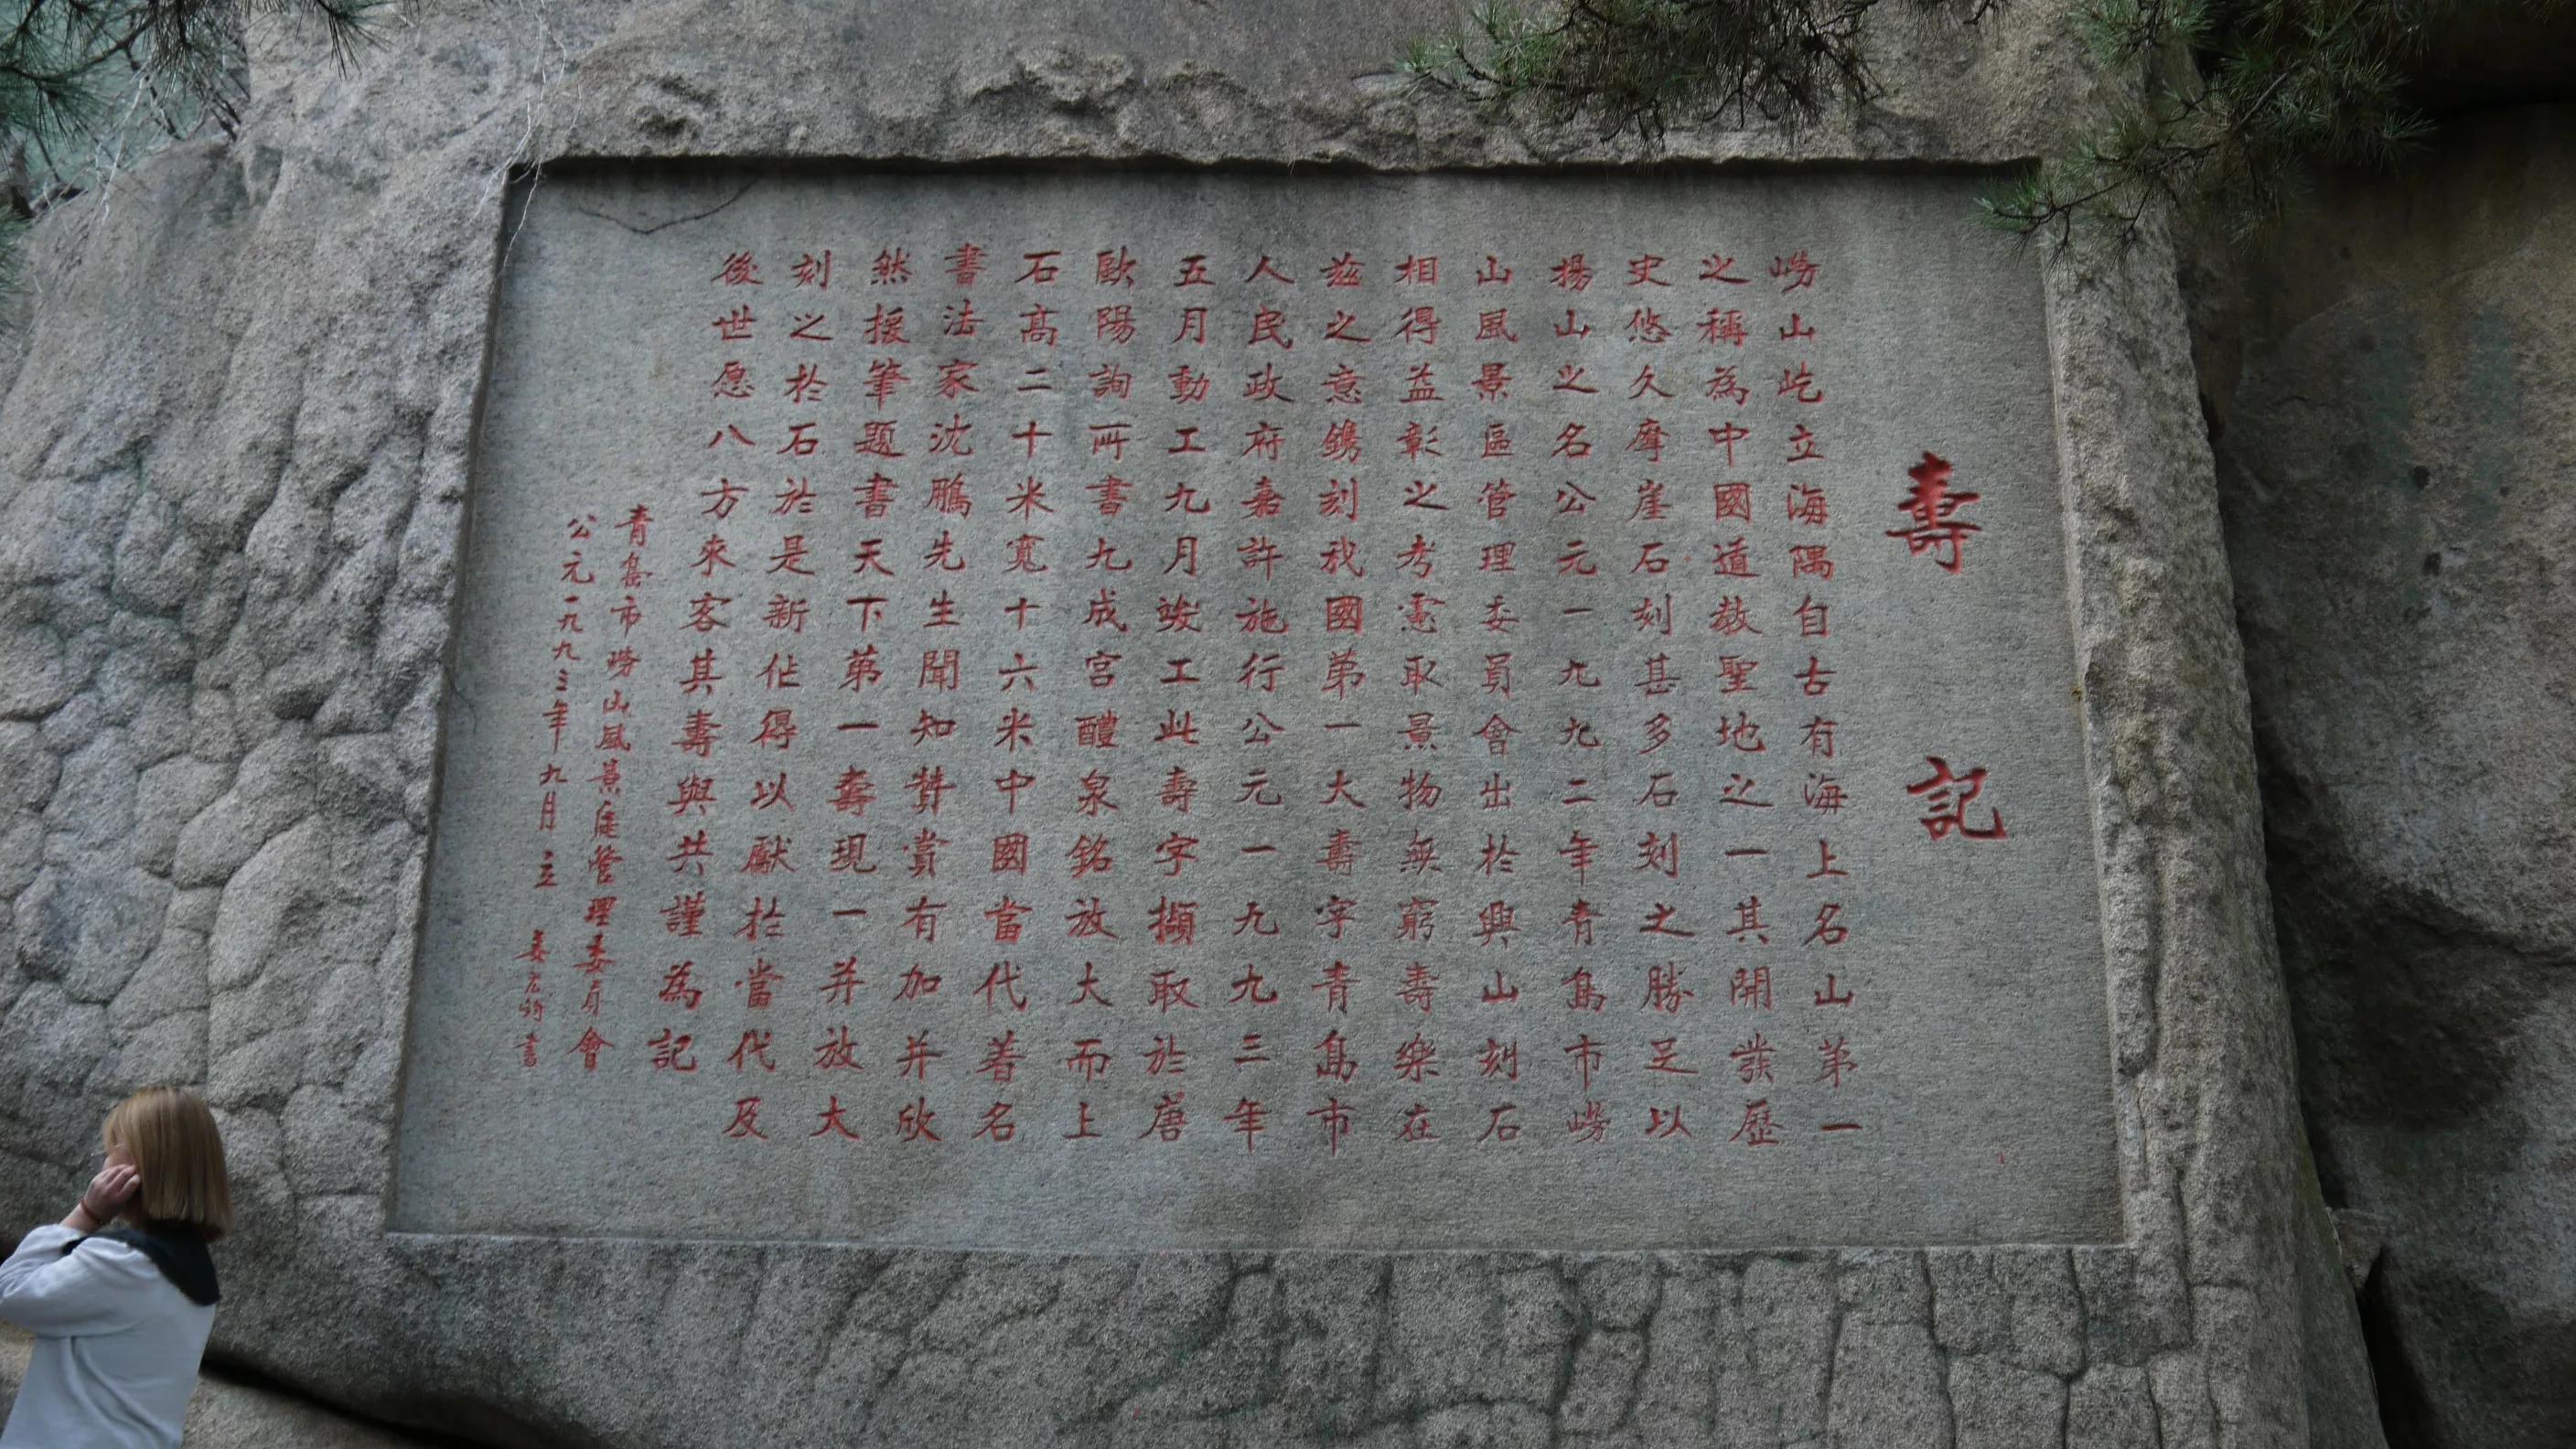 壽記
嶗山屹立海隅自古有海上名山第一
之稱為中國道教聖地之一其開発歷
史悠久摩崖石刻甚多石刻之勝足以
揚山之名公元一九九二年青島市嶗
山風景區管理委員會出於興山刻石
相得益彰之考慮取景物無窮壽樂在
茲之意鐫刻我國第一大壽字青島市
人民政府嘉許施行公元一九九三年
五月動工九月竣工此壽字擷取於唐
歐陽詢所書九成宮醴泉銘放大而上
石高二十米寬十六米中國當代著名
書法家沈鵬先生聞知贊賞有加并欣
然援筆題書天下第一壽現一并放大
刻之於石於是新作得以獻於當代及
後世愿八方來客其壽與共謹為記
青島市嶗山風景區管理委員會
公元一九九三年九月立 書